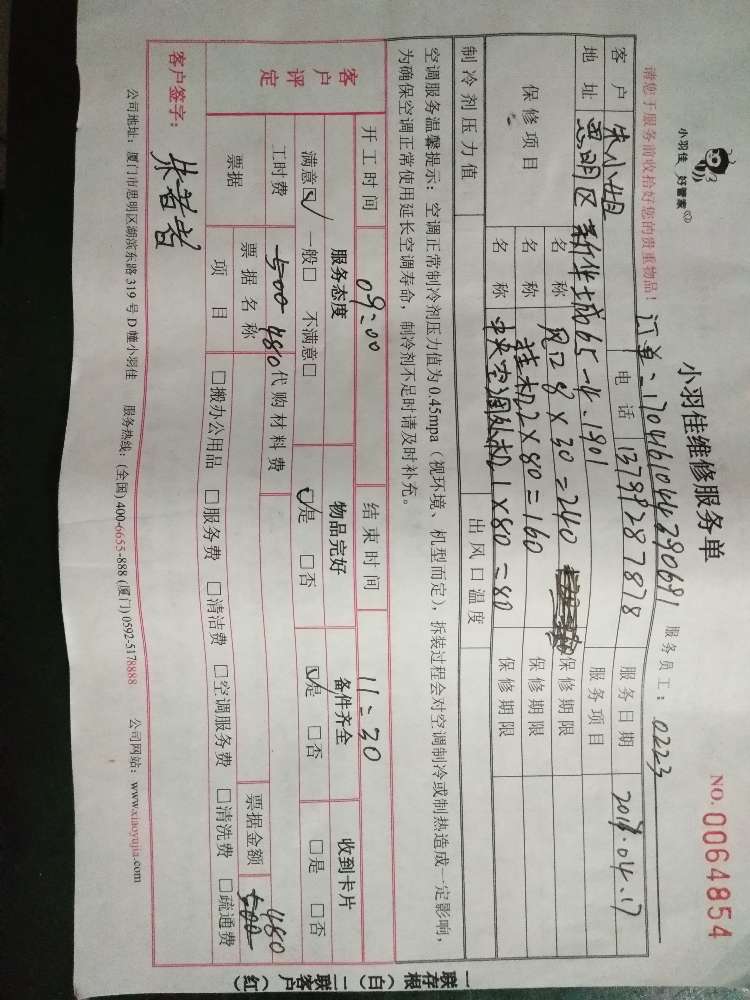 小羽佳 好管家
小羽佳维修服务单
NO. 0064854
请您于服务前收拾好您的贵重物品!
订单:170461044290691
服务员工: 0223
客户 朱小姐 电话 13799287878 服务日期 2017.04.17
地址 思明区新华城65-4.1901 服务项目
保修项目 名称 风口 8×30=240 保修期限
名称 挂机2×80=160 保修期限
名称 中央空调外机1×80=80 保修期限
制冷剂压力值 出风口温度
空调服务温馨提示:空调正常制冷剂压力值为0.45mpa(视环境、机型而定),拆装过程会对空调制冷或制热造成一定影响,
为确保空调正常使用延长空调寿命,制冷剂不足时请及时补充。
开工时间 09:00 结束时间 11:30
客户评定 服务态度 物品完好 备件齐全 收到卡片
满意☑ 一般□ 不满意□ ☑是 □否 ☑是 □否 □是 □否
工时费 500 480 代购材料费 票据金额 500 480
票据 票据名称
项目 □搬办公用品 □服务费 □清洁费 □空调服务费 □清洗费 □疏通费
客户签字:
公司地址:厦门市思明区湖滨东路319号D幢小羽佳 服务热线:(全国)400-6655-888 (厦门)0592-5178888 公司网站:www.xiaoyujia.com
一联存根(白) 二联客户(红)